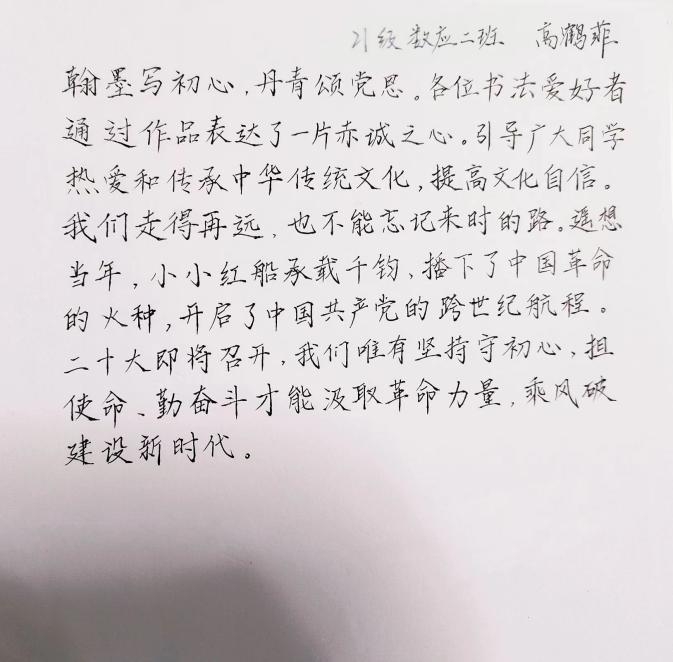 21级数应二班 高鹤菲
翰墨写初心，丹青颂党恩。各位书法爱好者
通过作品表达了一片赤诚之心。引导广大同学
热爱和传承中华传统文化，提高文化自信。
我们走得再远，也不能忘记来时的路。遥想
当年，小小红船承载千钧，播下了中国革命
的火种，开启了中国共产党的跨世纪航程。
二十大即将召开，我们唯有坚持守初心，担
使命、勤奋斗才能汲取革命力量，乘风破
建设新时代。